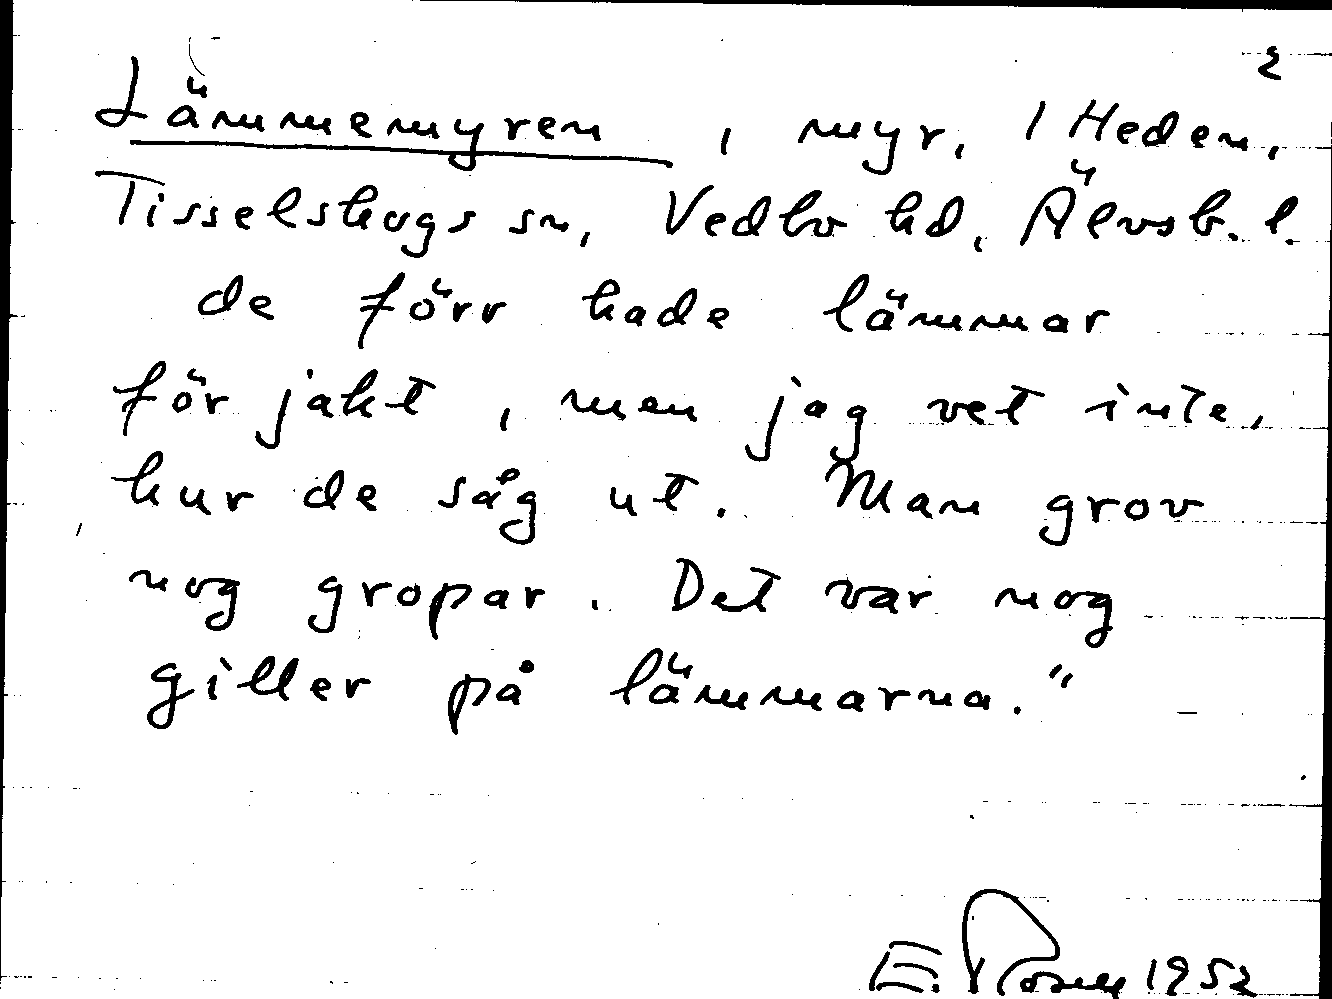 2
Lämmemyren, myr, 1 Heden,
Tisselskogs sn, Vedbo hd, Älvsb. l.
de förr hade lämmar
för jakt, men jag vet inte,
hur de såg ut. Man grov
nog gropar. Det var nog
giller på lämmarna."
E. Rosell 1952